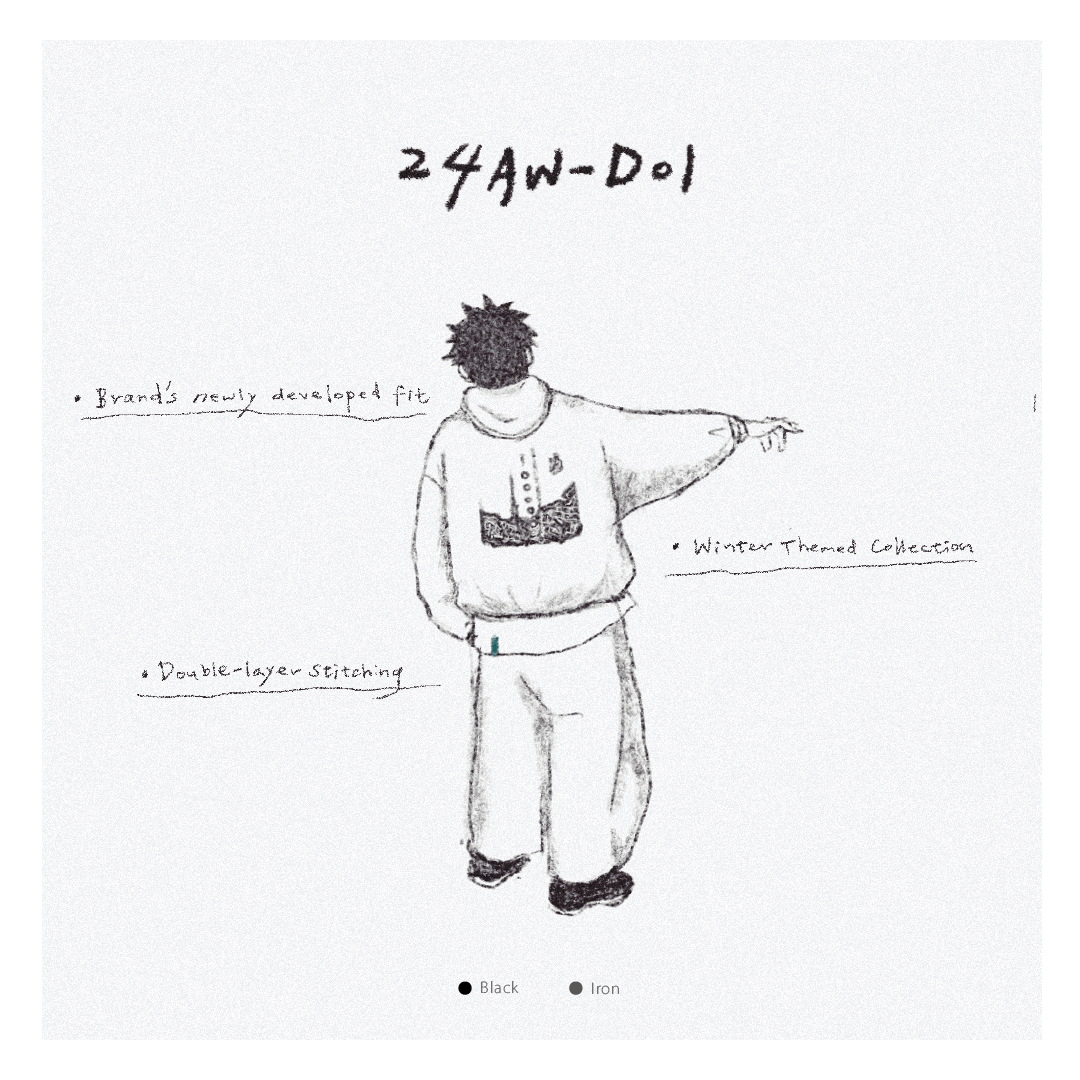 24AW-D01
• Brand's newly developed fit
• Winter Themed Collection
• Double-layer stitching
Black
Iron